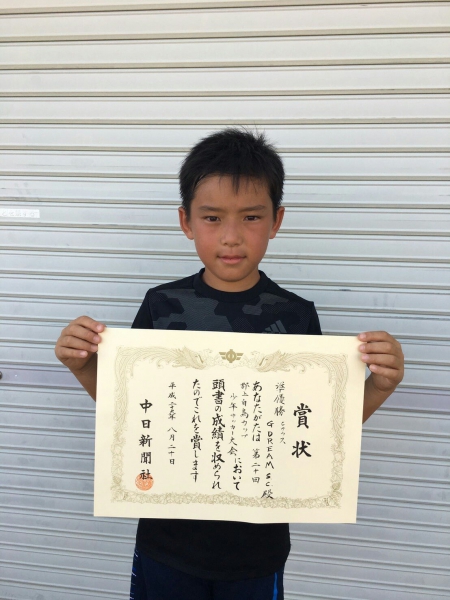 賞状
準優勝
GDREAM SC殿
あなたがたは 第二十回
郡上白鳥カップ
少年サッカー大会において
頭書の成績を収められ
たのでこれを賞します
八月二十日
中日新聞社